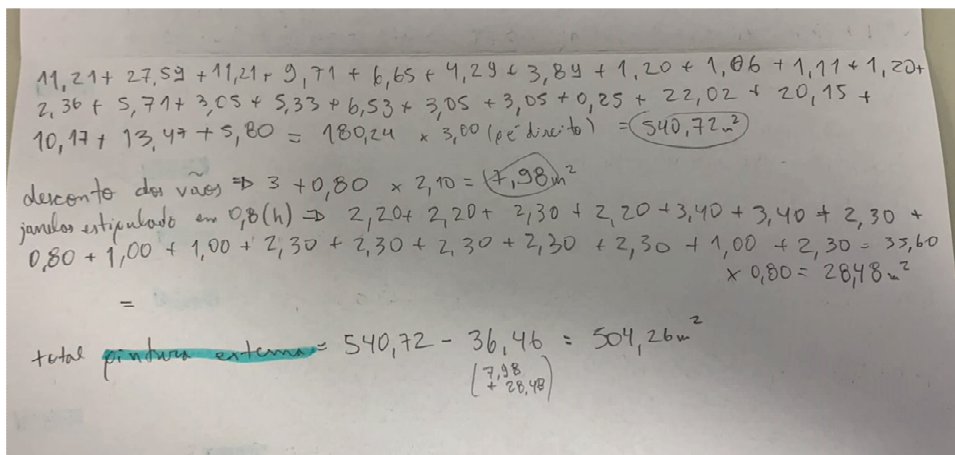 11,21 + 27,59 + 11,21 + 9,71 + 6,65 + 4,29 + 3,89 + 1,20 + 1,06 + 1,11 + 1,20+
2,36 + 5,71 + 3,05 + 5,33 + 6,53 + 3,05 + 3,05 + 0,25 + 22,02 + 20,15 +
10,17 + 13,47 + 5,80 = 180,24 x 3,00 (pé direito) = 540,72 m²
desconto dos vãos ⇒ 3 + 0,80 x 2,10 = 7,98 m²
janelas estipulado em 0,8 (h) ⇒ 2,20 + 2,20 + 2,30 + 2,20 + 3,40 + 3,40 + 2,30 +
0,80 + 1,00 + 1,00 + 2,30 + 2,30 + 2,30 + 2,30 + 2,30 + 1,00 + 2,30 = 35,60
x 0,80 = 28,48 m²
=
total pintura externa = 540,72 - 36,46 = 504,26 m²
(7,98
+ 28,48)